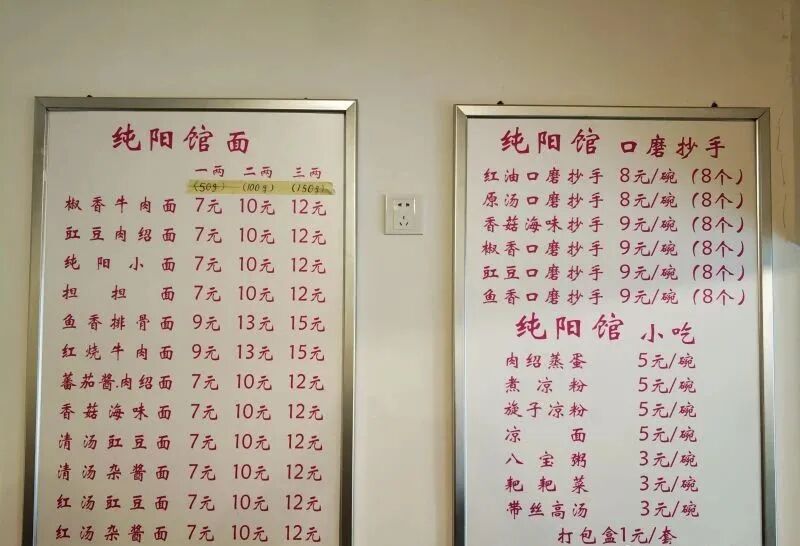 纯阳馆面
一两 二两 三两
(50g) (100g) (150g)
椒香牛肉面 7元 10元 12元
豇豆肉绍面 7元 10元 12元
纯阳小面 7元 10元 12元
担担面 7元 10元 12元
鱼香排骨面 9元 13元 15元
红烧牛肉面 9元 13元 15元
蕃茄酱肉绍面 7元 10元 12元
香菇海味面 7元 10元 12元
清汤豇豆面 7元 10元 12元
清汤杂酱面 7元 10元 12元
红汤豇豆面 7元 10元 12元
红汤杂酱面 7元 10元 12元
纯阳馆 口磨抄手
红油口磨抄手 8元/碗 (8个)
原汤口磨抄手 8元/碗 (8个)
香菇海味抄手 9元/碗 (8个)
椒香口磨抄手 9元/碗 (8个)
豇豆口磨抄手 9元/碗 (8个)
鱼香口磨抄手 9元/碗 (8个)
纯阳馆 小吃
肉绍蒸蛋 5元/碗
煮凉粉 5元/碗
旋子凉粉 5元/碗
凉面 5元/碗
八宝粥 3元/碗
粑粑菜 3元/碗
带丝高汤 3元/碗
打包盒1元/套